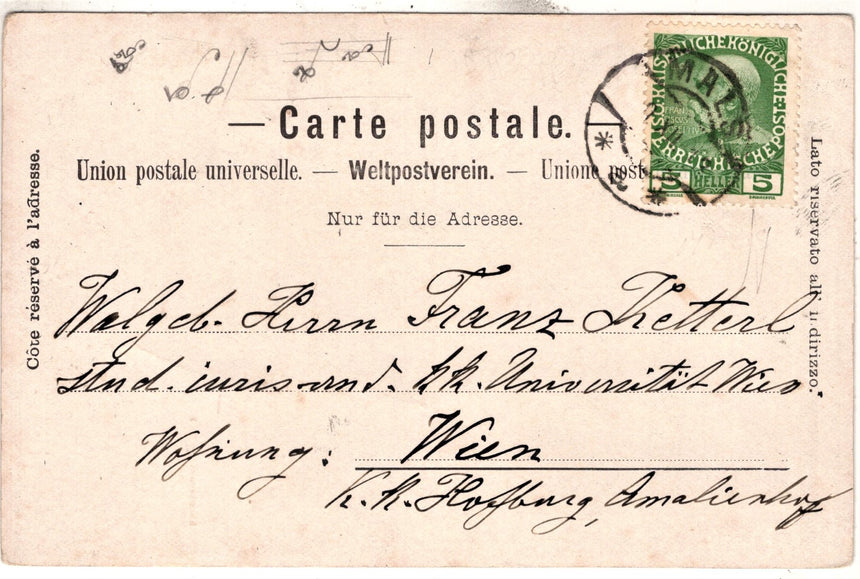 Carte postale.
Union postale universelle. — Weltpostverein. — Unione post
Nur für die Adresse.
Côte réservé à l'adresse.
Lato riservato all' indirizzo.
KAISERLICHEKÖNIGLICHE
ÖSTERREICHISCHEPOST
5 HELLER 5
MALS
Wolgeb. Herrn Franz Ketterl
stud. iuris and. k.k. Universität Wien
Wohnung: Wien
K. K. Hofburg, Amalienhof